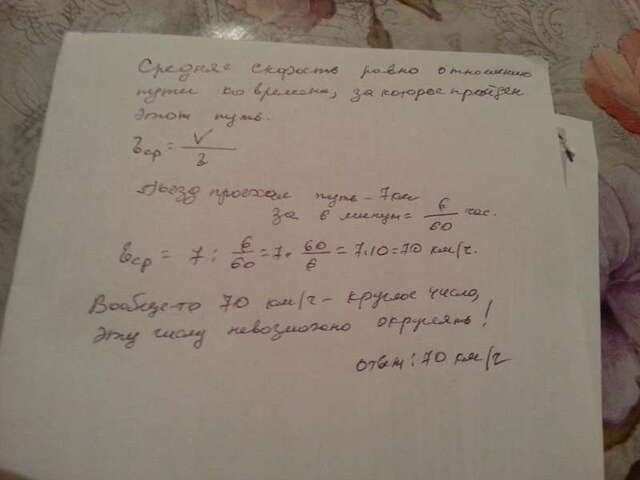 Средняя скорость равно отношению
пути ко времени, за которое пройден
этот путь.
ср =
2
Поезд проехал путь – 7 км
за 6 минут = 6/60 час.
ср = 7 : 6/60 = 7 · 60/6 = 7·10 = 70 км/ч.
Вообще-то 70 км/ч – круглое число,
эту числу невозможно округлять!
ответ: 70 км/ч